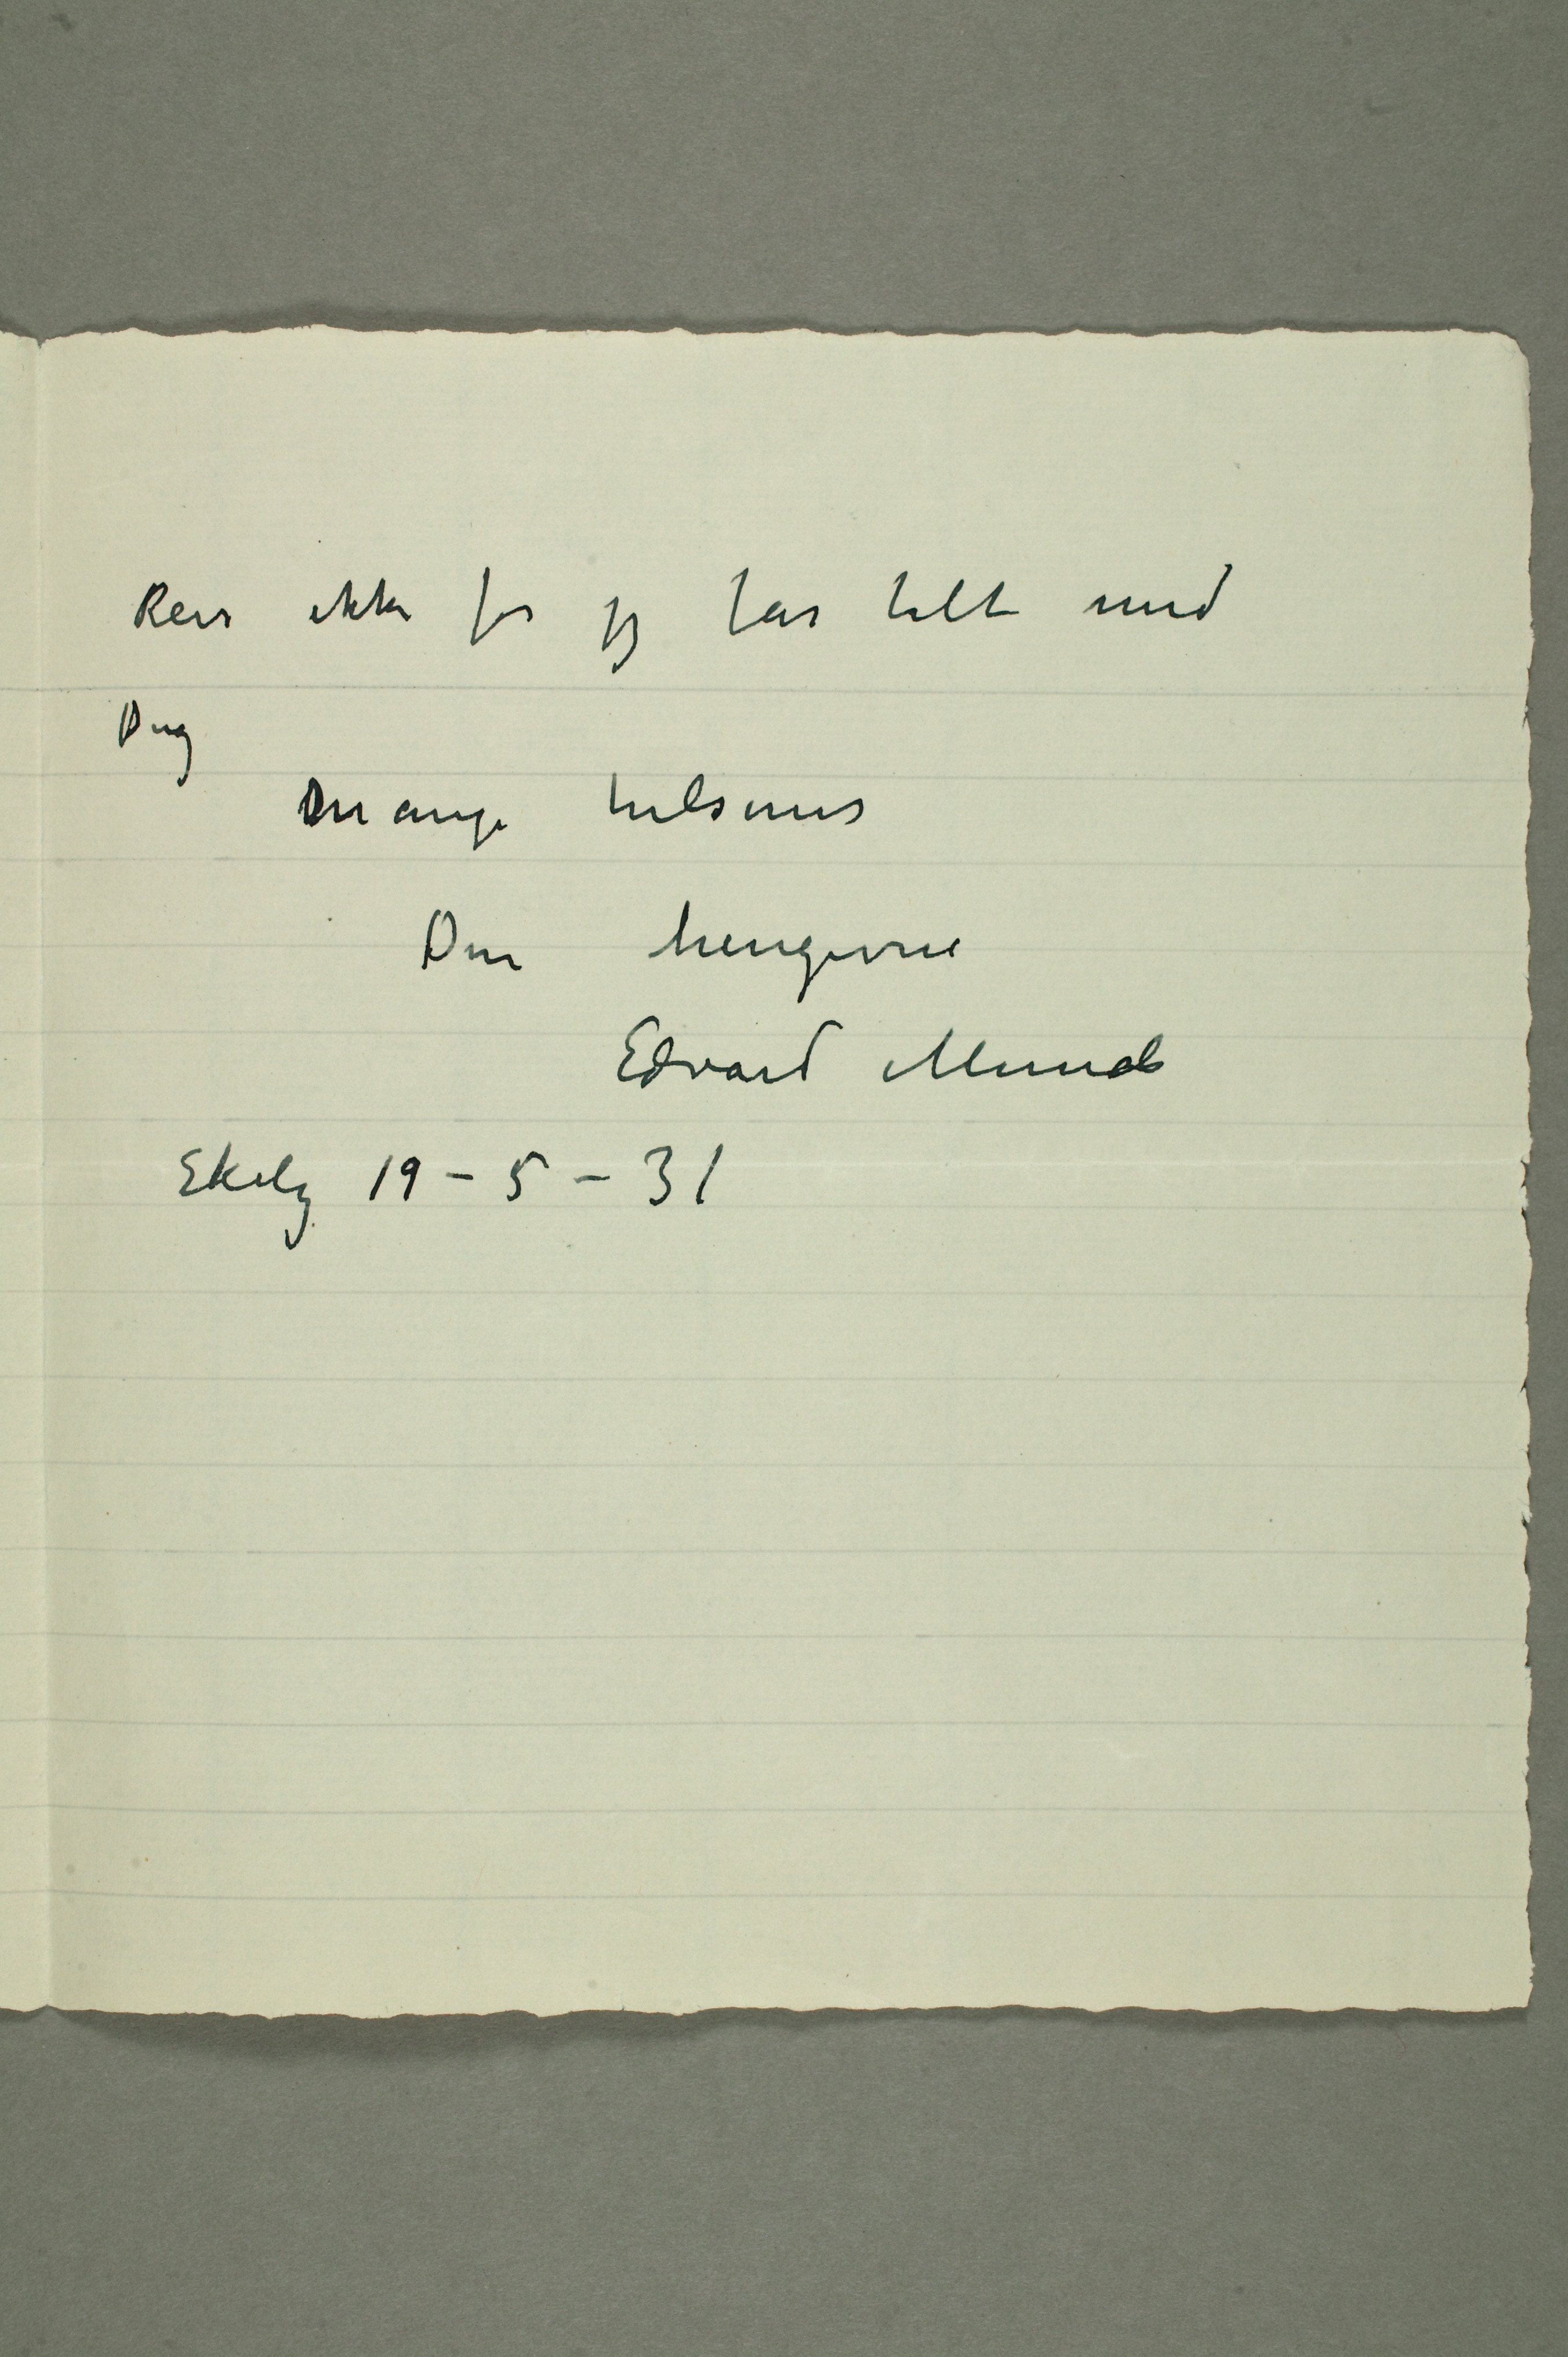 Reis ikke før jeg får talt med
Dig
Mange hilsener
Din hengivne
Edvard Munch
Ekely 19 – 5 – 31